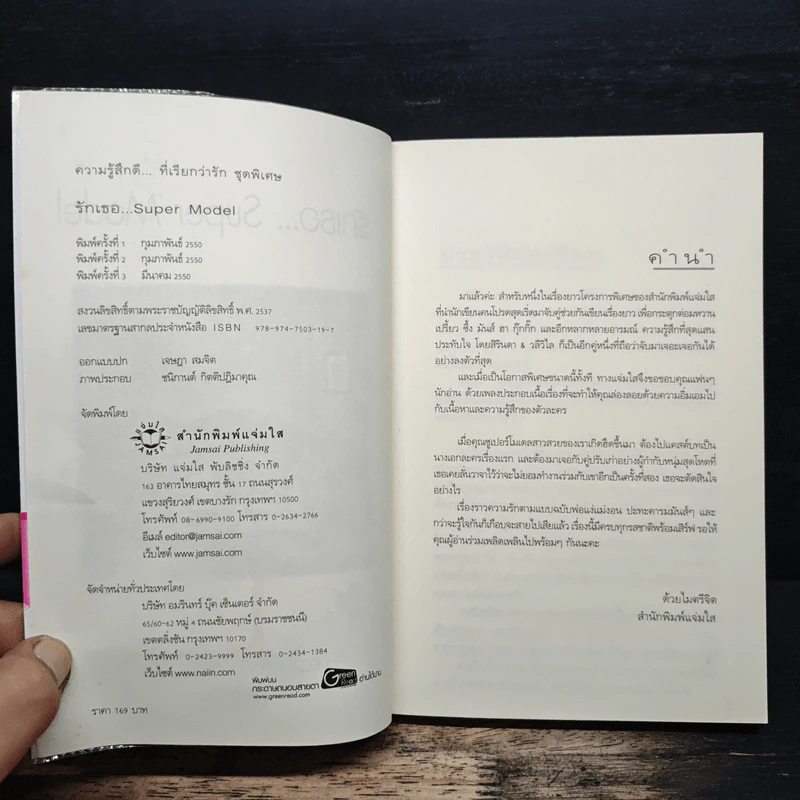 ความรู้สึกดี... ที่เรียกว่ารัก ชุดพิเศษ
รักเธอ...Super Model
พิมพ์ครั้งที่ 1 กุมภาพันธ์ 2550
พิมพ์ครั้งที่ 2 กุมภาพันธ์ 2550
พิมพ์ครั้งที่ 3 มีนาคม 2550
สงวนลิขสิทธิ์ตามพระราชบัญญัติลิขสิทธิ์ พ.ศ. 2537
เลขมาตรฐานสากลประจำหนังสือ ISBN 978-974-7503-19-7
ออกแบบปก เจษฎา สมจิต
ภาพประกอบ ชนิกานต์ กิตติปฏิมาคุณ
จัดพิมพ์โดย
แจ่มใส
JAMSAI
สำนักพิมพ์แจ่มใส
Jamsai Publishing
บริษัท แจ่มใส พับลิชชิ่ง จำกัด
163 อาคารไทยสมุทร ชั้น 17 ถนนสุรวงศ์
แขวงสุริยวงศ์ เขตบางรัก กรุงเทพฯ 10500
โทรศัพท์ 08-6990-9100 โทรสาร 0-2634-2766
อีเมล์ editor@jamsai.com
เว็บไซต์ www.jamsai.com
จัดจำหน่ายทั่วประเทศโดย
บริษัท อมรินทร์ บุ๊ค เซ็นเตอร์ จำกัด
65/60-62 หมู่ 4 ถนนชัยพฤกษ์ (บรมราชชนนี)
เขตตลิ่งชัน กรุงเทพฯ 10170
โทรศัพท์ 0-2423-9999 โทรสาร 0-2434-1384
เว็บไซต์ www.naiin.com
พิมพ์บน
กระดาษถนอมสายตา Green Read อ่านได้นาน
www.greenread.com
ราคา 169 บาท
คำนำ
มาแล้วค่ะ สำหรับหนึ่งในเรื่องยาวโครงการพิเศษของสำนักพิมพ์แจ่มใส
ที่นำนักเขียนคนโปรดสุดเริ่ดมาจับคู่ช่วยกันเขียนเรื่องยาว เพื่อกระตุกต่อมหวาน
เปรี้ยว ซึ้ง มันส์ ฮา กุ๊กกิ๊ก และอีกหลากหลายอารมณ์ ความรู้สึกที่สุดแสน
ประทับใจ โดยสิรินดา & วลีวิไล ก็เป็นอีกคู่หนึ่งที่ถือว่าจับมาเจอะเจอกันได้
อย่างลงตัวที่สุด
และเมื่อเป็นโอกาสพิเศษขนาดนี้ทั้งที ทางแจ่มใสจึงขอขอบคุณแฟนๆ
นักอ่าน ด้วยเพลงประกอบเนื้อเรื่องที่จะทำให้คุณล่องลอยด้วยความอิ่มเอมไป
กับเนื้อหาและความรู้สึกของตัวละคร
เมื่อคุณซูเปอร์โมเดลสาวสวยของเราเกิดฮึดขึ้นมา ต้องไปแคสต์บทเป็น
นางเอกละครเรื่องแรก และต้องมาเจอกับคู่ปรับเก่าอย่างผู้กำกับหนุ่มสุดโหดที่
เธอเคยลั่นวาจาไว้ว่าจะไม่ยอมทำงานร่วมกับเขาอีกเป็นครั้งที่สอง เธอจะตัดสินใจ
อย่างไร
เรื่องราวความรักตามแบบฉบับพ่อแง่แม่งอน ปะทะคารมมันส์ๆ และ
กว่าจะรู้ใจกันก็เกือบจะสายไปเสียแล้ว เรื่องนี้มีครบทุกรสชาติพร้อมเสิร์ฟ รอให้
คุณผู้อ่านร่วมเพลิดเพลินไปพร้อมๆ กันนะคะ
ด้วยไมตรีจิต
สำนักพิมพ์แจ่มใส